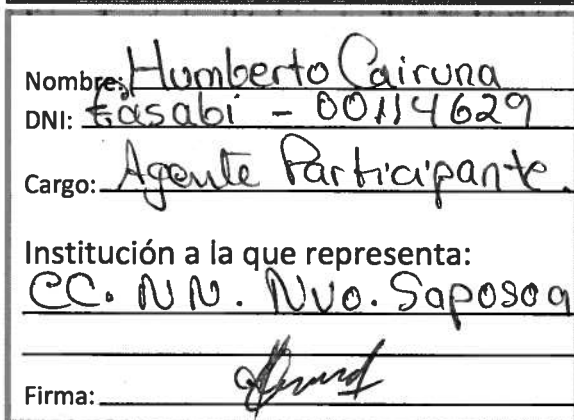 Nombre: Humberto Cairuna
DNI: Fasabi - 00114629
Cargo: Agente Participante.
Institución a la que representa:
CC. NN. Nvo. Saposoa
Firma: